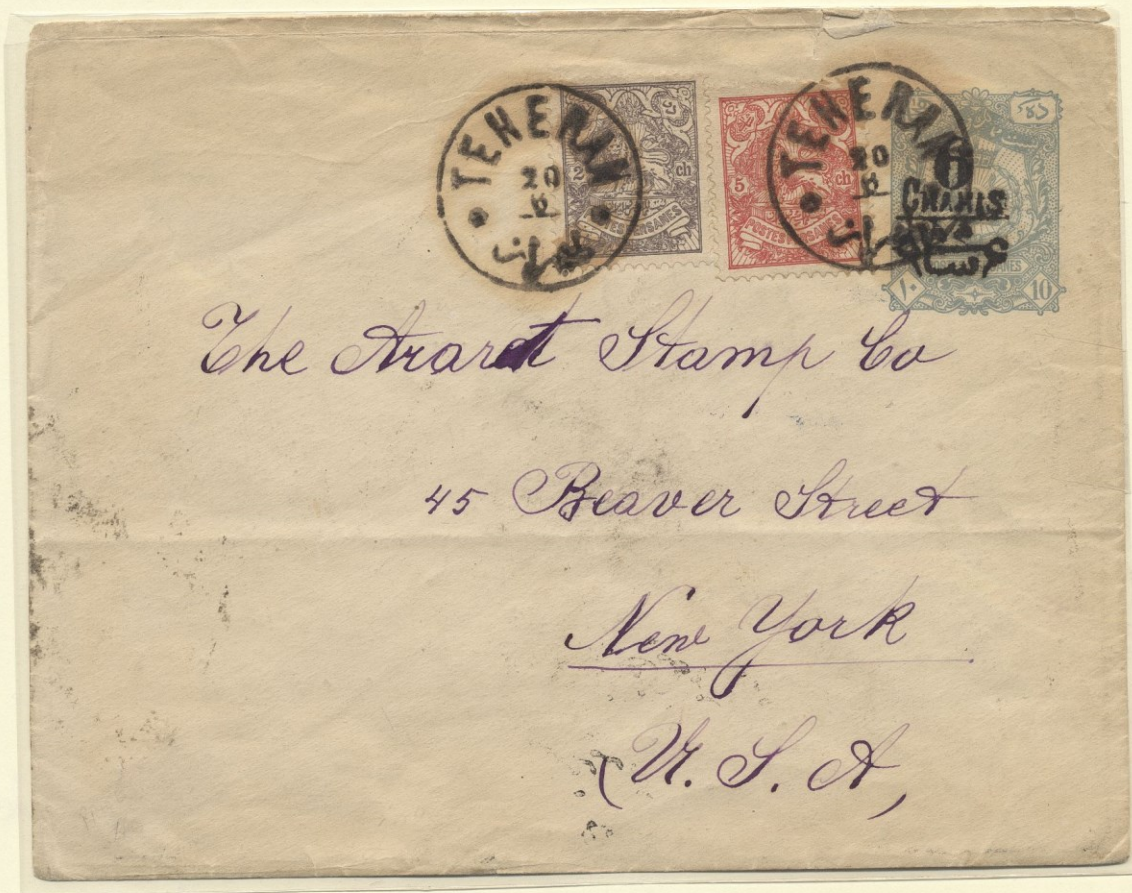 TEHERAN
20
2 ch
POSTES PERSANES
5 ch
POSTES PERSANES
TEHERAN
20
6
CHAHIS
۱۰
10
The Ararat Stamp Co
45 Beaver Street
New York
U. S. A,